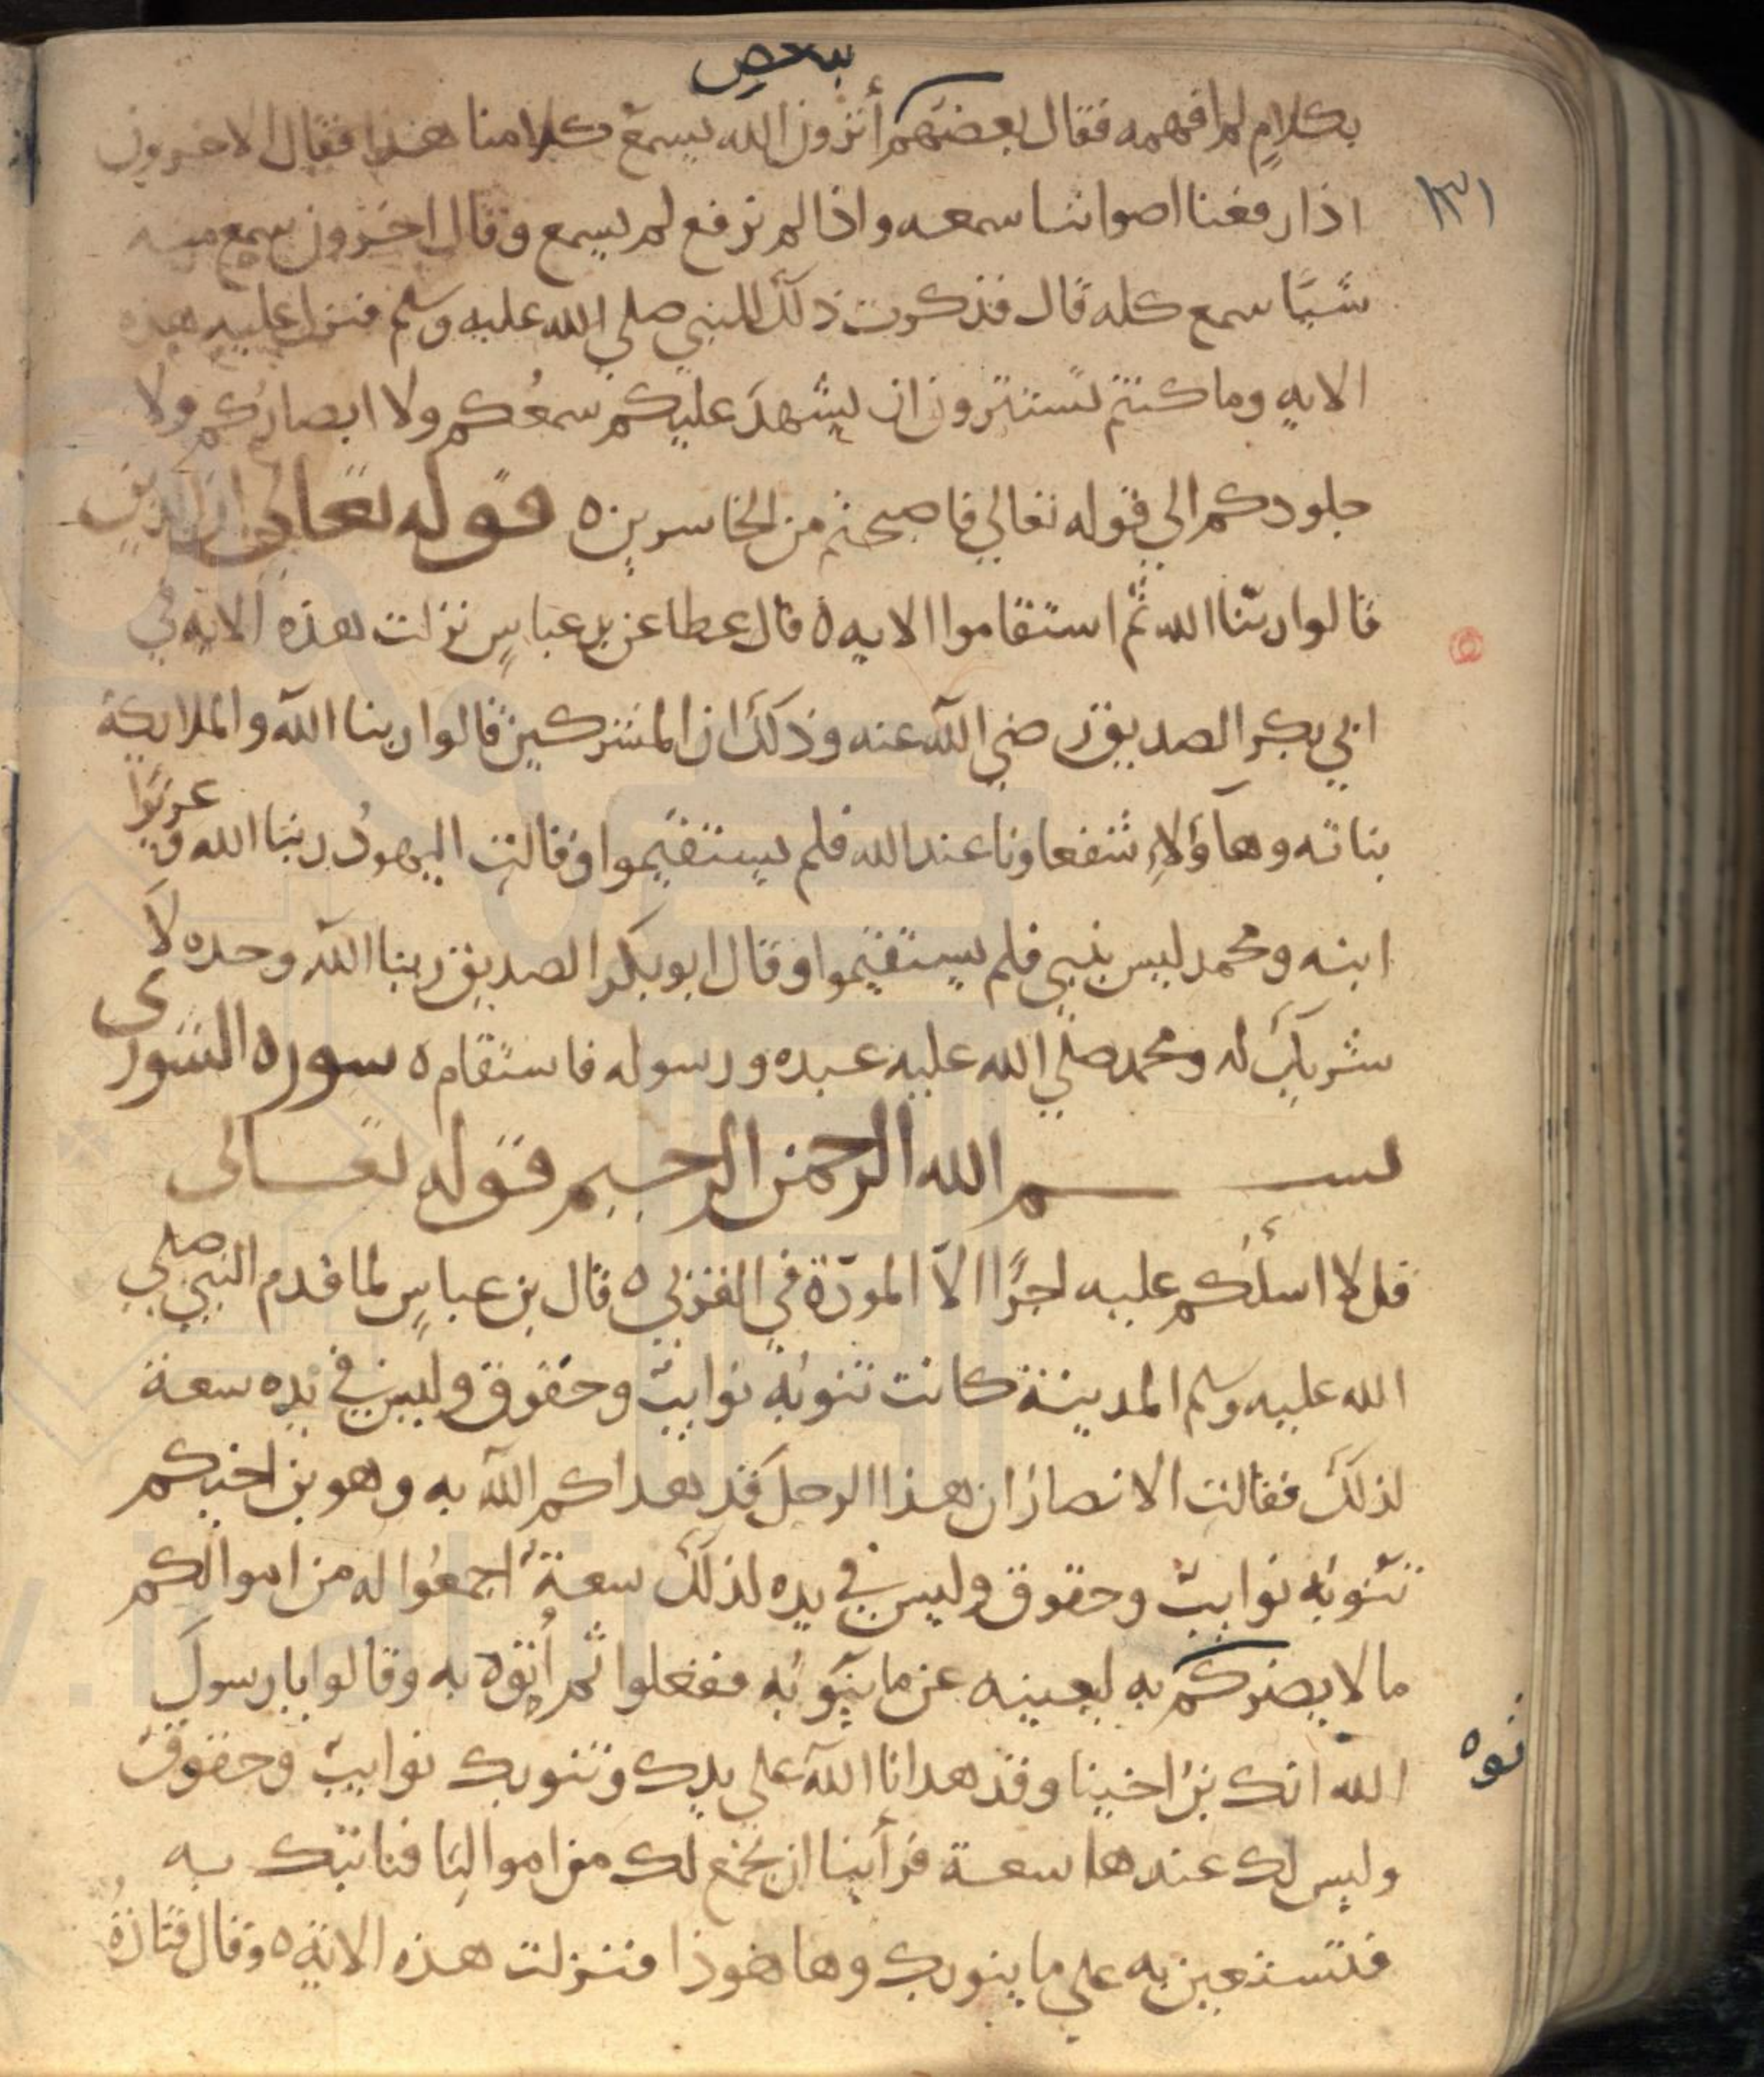 بعض
بكلام لم افهمه فقال بعضهم أترون الله يسمع كلامنا هذا فقال الاخرون
١٣١
اذا رفعنا اصواتنا سمعه واذا لم نرفع لم يسمع وقال اخرون سمع منه
شيا سمع كله قال فذكرت ذلك للنبي صلى الله عليه وسلم فنزل عليه هذه
الايه وما كنتم تستترون ان يشهد عليكم سمعُكم ولا ابصاركم ولا
جلودكم الي قوله تعالي فاصبحتم من الخاسرين ه قوله تعالى ان الذين
قالوا ربّنا الله ثم استقاموا الايه ه قال عطا عن بن عباسٍ نزلت هذه الايه في
ابي بكر الصديق رضي الله عنه وذلك ان المشركين قالوا ربنا الله والملايكة
بناته وهآؤلاءِ شفعاونا عند الله فلم يستقيموا وقالت اليهودُ ربنا الله وعزيرًا
ابنه ومحمد ليس بنبي فلم يستقيموا وقال ابو بكر الصديق ربنا الله وحده لا
شريك له ومحمد صلي الله عليه عبده ورسوله فاستقام ه سورة الشورى
بسم الله الرحمن الرحيم قوله تعالى
قل لا اسألكم عليه اجرًا الا المودّة في القربي ه قال بن عباسٍ لما قدم النبي صلى
الله عليه وسلم المدينة كانت تنوبُه نوايب وحقوق وليس في يده سعة
لذلك فقالت الانصار ان هذا الرجل قد هداكم الله به وهو بن اختكم
تنوبُه نوايب وحقوق وليس في يده لذلك سعةٌ اجمعُوا له من اموالكم
ما لا يضركم به ليعينه عن ما ينوبُه ففعلوا ثم أتوه به وقالوا يا رسولَ
نوه
الله انك بن اختنا وقد هدانا الله علي يدك وتنوبك نوايب وحقوق
وليس لك عندها سعة فرأينا ان نجمع لك من اموالنا فناتيك به
فتستعين به علي ما ينوبك وها هوذا فنزلت هذه الاية ه وقال قتادةُ